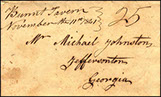 Burnt Tavern 25
November the 11th 1841
Mr Michael Johnston
Jeffersonton
Georgia